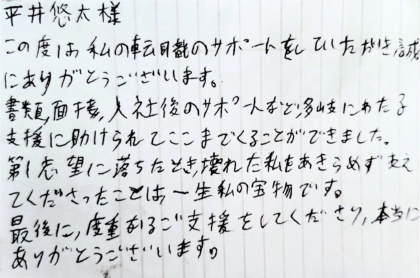 平井悠太様
この度は私の転職のサポートをしていただき誠
にありがとうございます。
書類,面接,入社後のサポートなど多岐にわたる
支援に助けられてここまでくることができました。
第1志望に落ちたとき壊れた私をあきらめず支え
てくださったことは一生私の宝物です。
最後に,度重なるご支援をしてくださり,本当に
ありがとうございます。